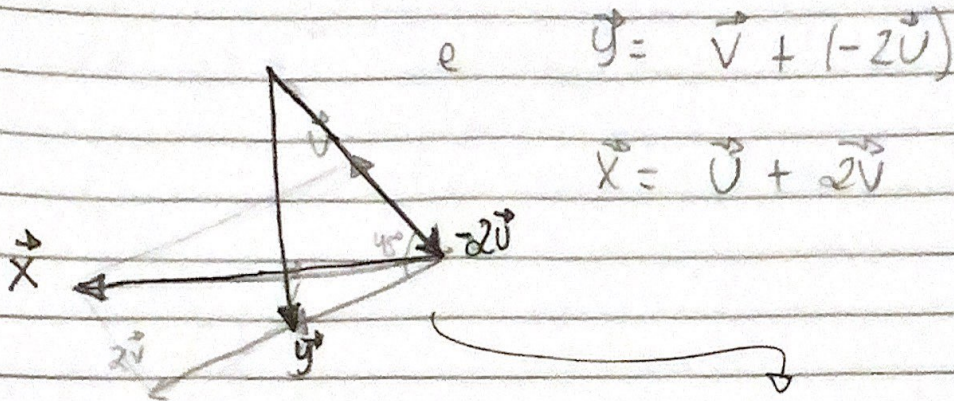 e y⃗ = v⃗ + (-2u⃗)
x⃗ = u⃗ + 2v⃗
u⃗
45°
-2u⃗
x⃗
y⃗
2v⃗